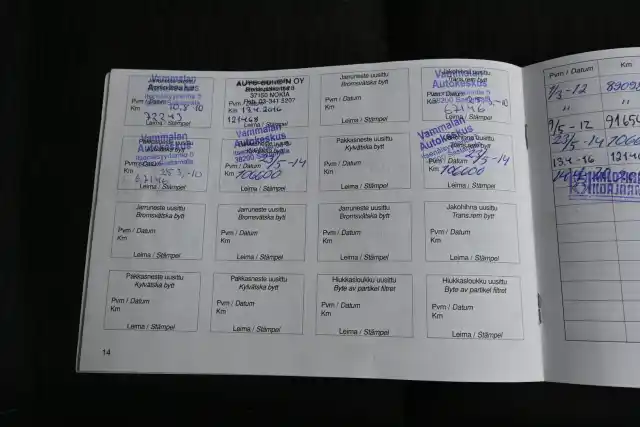 Vammalan
Autokeskus
Pvm / Datum
10.8.-10
72243
Leima / Stämpel
AUTO-BONE'N OY
37150 NOKIA
Puh. 03-341 5207
Pvm / Datum
Km 13.4.2016
121468
Leima / Stämpel
Jarruneste uusittu
Bromsvätska bytt
Pvm / Datum
Km
Leima / Stämpel
Jakohihna uusittu
Trans.rem bytt
Vammalan
Autokeskus
25.3.-10
67146
Leima / Stämpel
Vammalan
Autokeskus
Pvm / Datum
25.3.-10
Km
67146
Leima / Stämpel
Vammalan
Autokeskus
Pvm / Datum
23/5-14
Km 106600
Leima / Stämpel
Pakkasneste uusittu
Kylvätska bytt
Pvm / Datum
Km
Leima / Stämpel
Vammalan
Autokeskus
23/5-14
Km 106600
Leima / Stämpel
Jarruneste uusittu
Bromsvätska bytt
Pvm / Datum
Km
Leima / Stämpel
Jarruneste uusittu
Bromsvätska bytt
Pvm / Datum
Km
Leima / Stämpel
Jarruneste uusittu
Bromsvätska bytt
Pvm / Datum
Km
Leima / Stämpel
Jakohihna uusittu
Trans.rem bytt
Pvm / Datum
Km
Leima / Stämpel
Pakkasneste uusittu
Kylvätska bytt
Pvm / Datum
Km
Leima / Stämpel
Pakkasneste uusittu
Kylvätska bytt
Pvm / Datum
Km
Leima / Stämpel
Hiukkasloukku uusittu
Byte av partikel filtret
Pvm / Datum
Km
Leima / Stämpel
Hiukkasloukku uusittu
Byte av partikel filtret
Pvm / Datum
Km
Leima / Stämpel
14
Pvm / Datum Km
7/3-12 89095
" "
9/5-12 91654
23/5-14 10660
13.4-16 12146